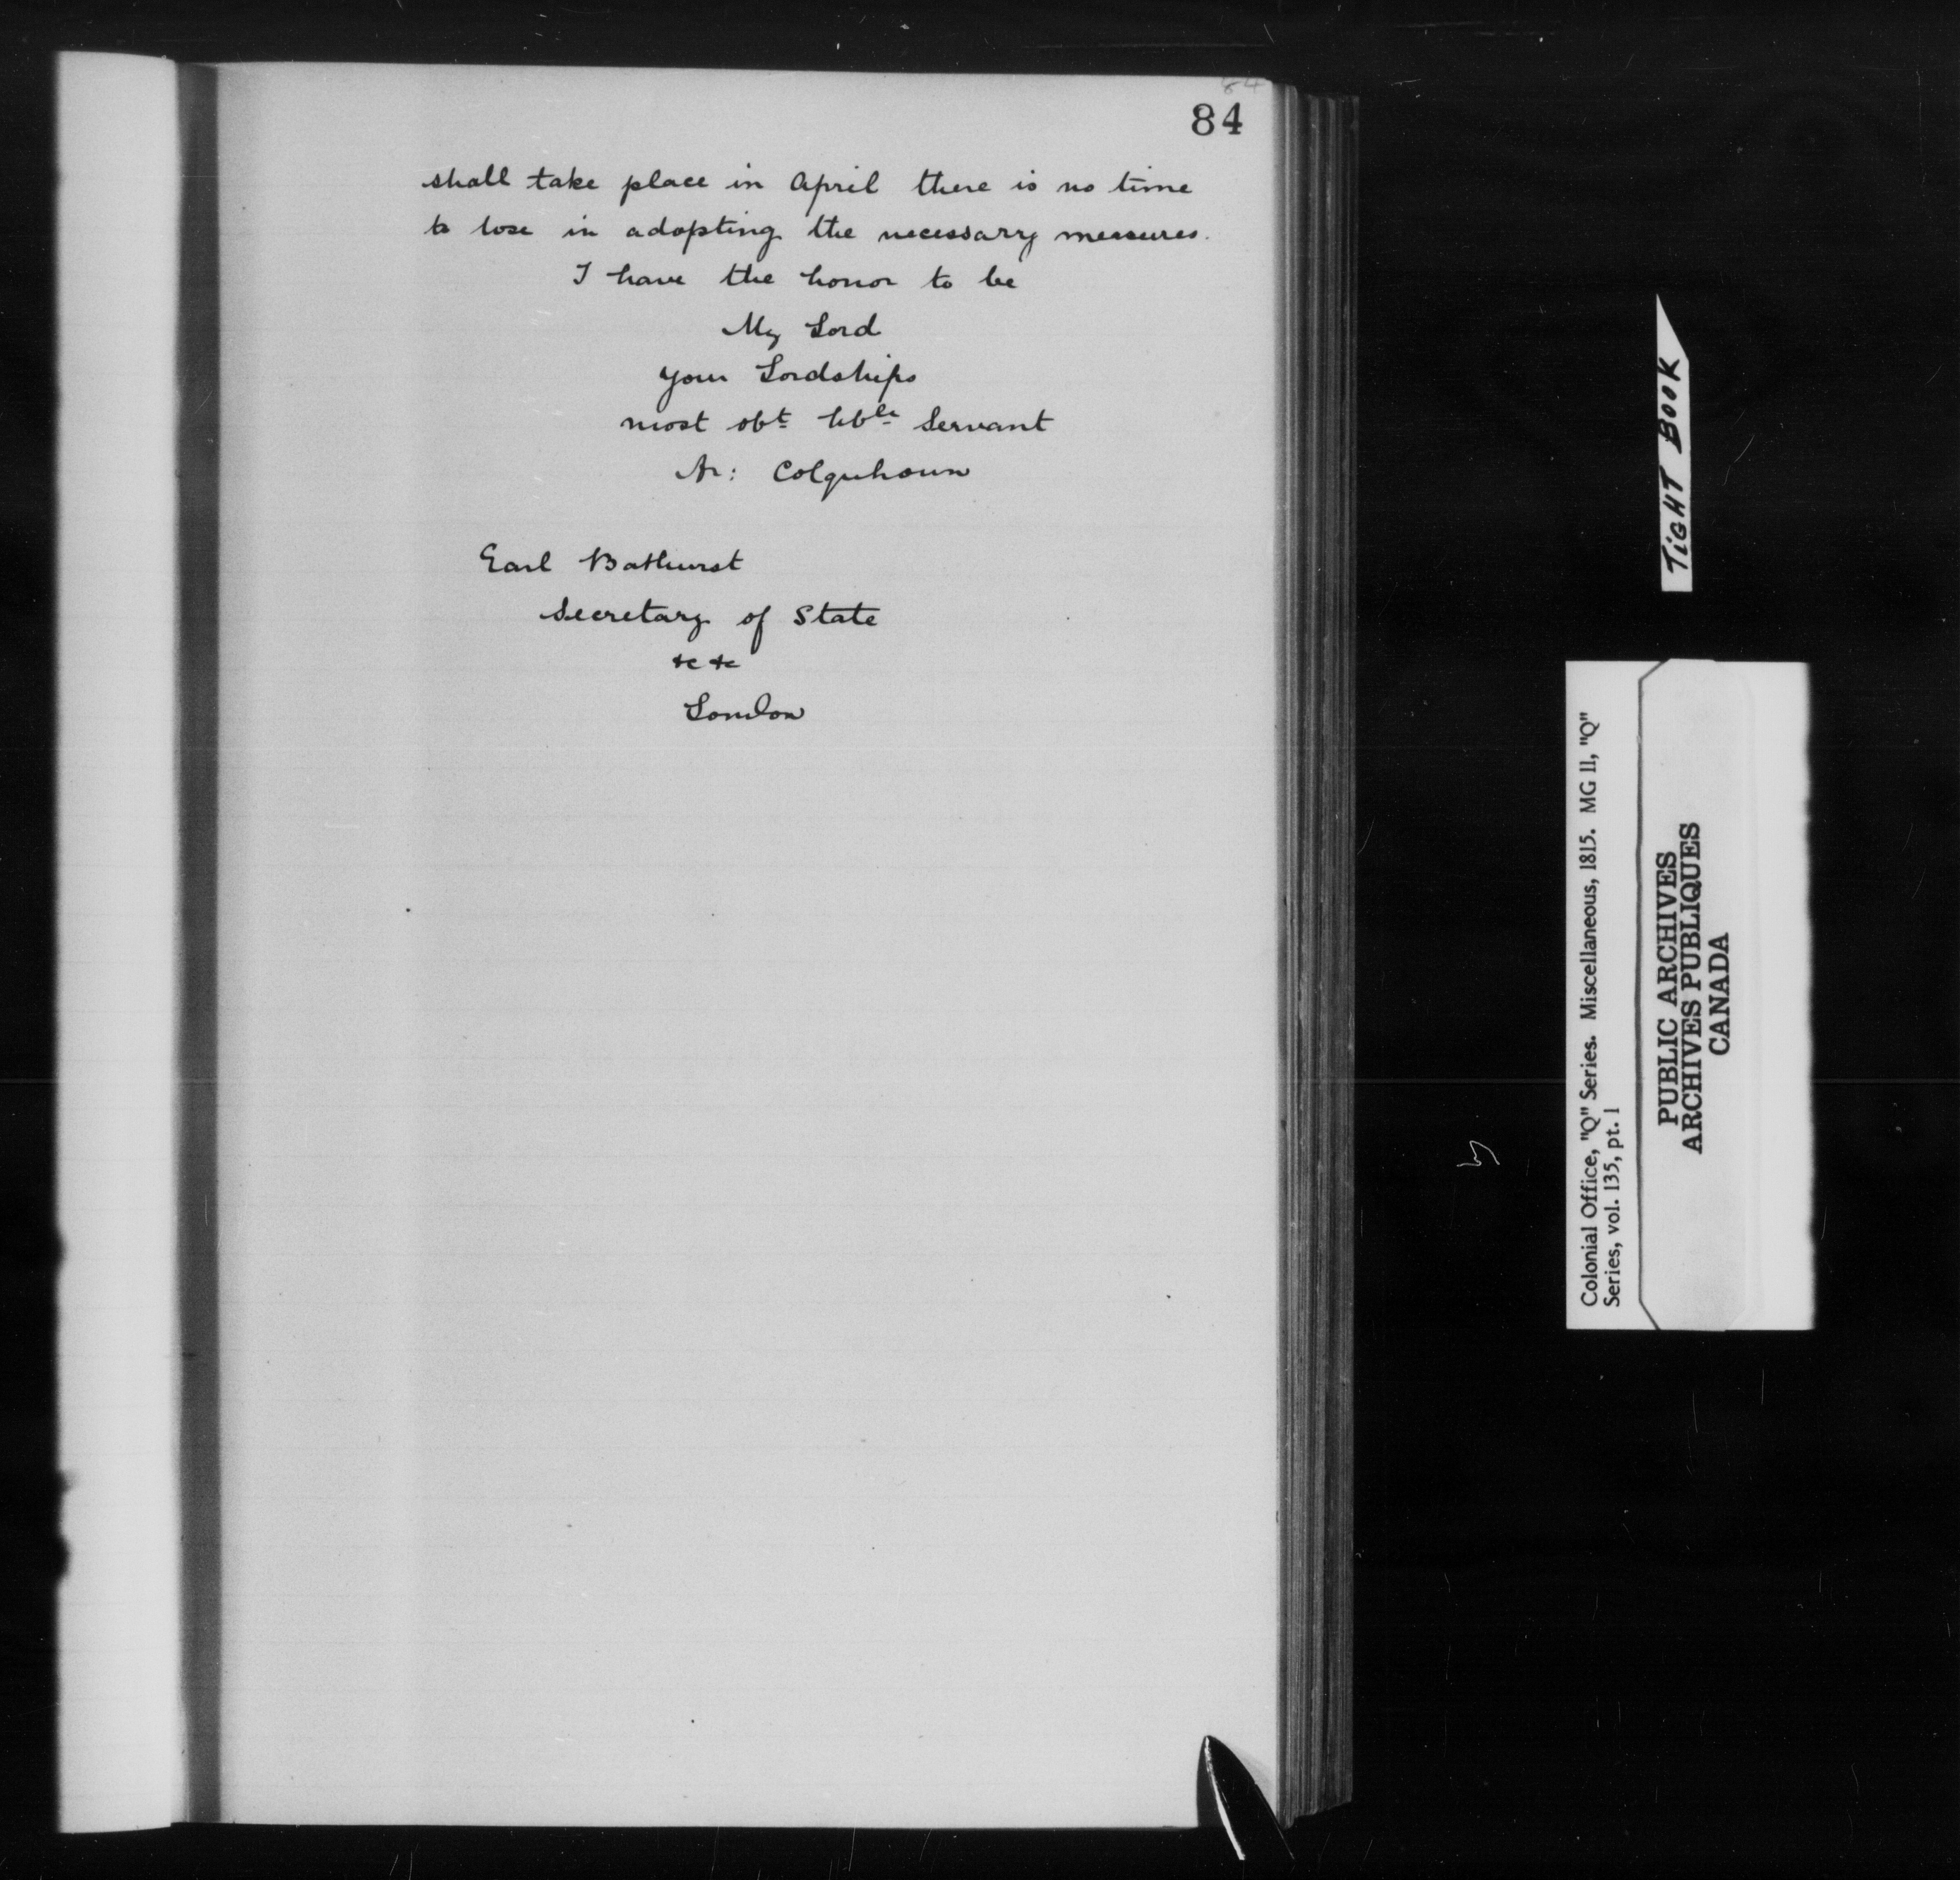 84
84
shall take place in April there is no time
to lose in adopting the necessary measures.
I have the honor to be
My Lord
your Lordships
most obt hble Servant
Ar: Colquhoun
Earl Bathurst
Secretary of State
&c &c
London
TIGHT BOOK
Colonial Office, "Q" Series. Miscellaneous, 1815. MG 11, "Q"
Series, vol. 135, pt. 1
PUBLIC ARCHIVES
ARCHIVES PUBLIQUES
CANADA